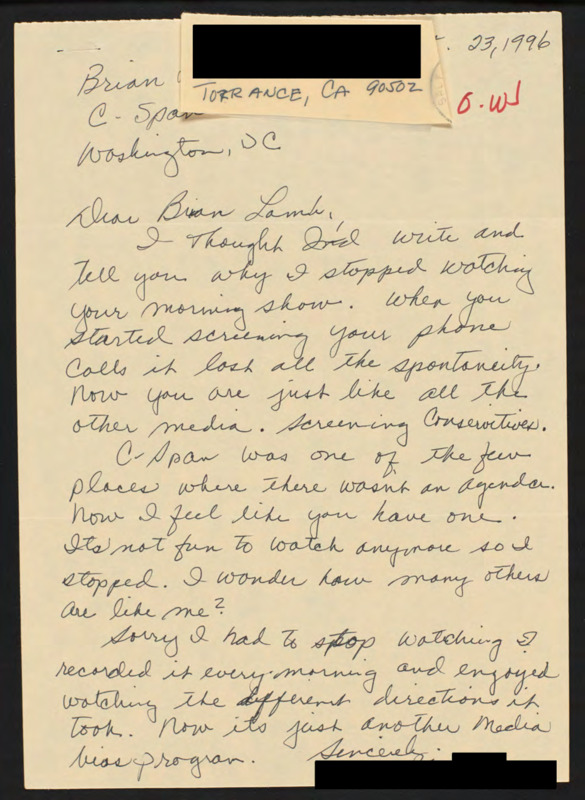 . 23, 1996
TORRANCE, CA 90502
O.W
Brian
C-Span
Washington, DC
Dear Brian Lamb,
I thought I'd write and
tell you why I stopped watching
your morning show. When you
started screening your phone
calls it lost all the spontaneity.
Now you are just like all the
other media. Screening Conservitives.
C-Span was one of the few
places where there wasn't an agenda.
Now I feel like you have one.
It's not fun to watch anymore so I
stopped. I wonder how many others
are like me?
Sorry I had to stop watching I
recorded it every morning and engoyed
watching the different directions it
took. Now its just another Media
bias program. Sincerely,